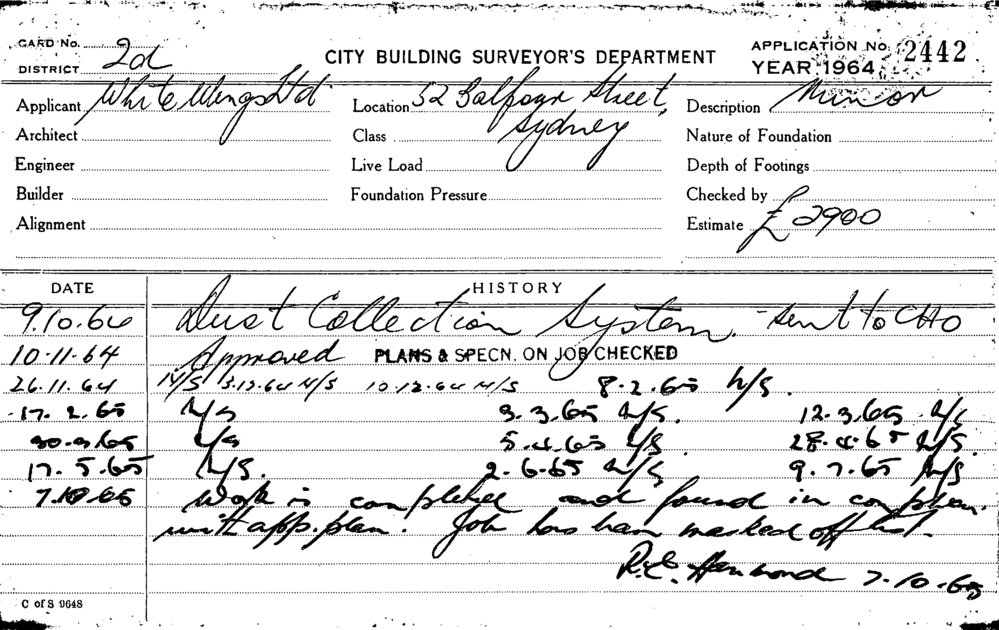 CARD No.
DISTRICT 2d
CITY BUILDING SURVEYOR'S DEPARTMENT
APPLICATION No. 2442
YEAR 1964
Applicant White Wings Ltd
Location 52 Balfour Street,
Sydney
Description Minor
Architect
Class
Nature of Foundation
Engineer
Live Load
Depth of Footings
Builder
Foundation Pressure
Checked by
Alignment
Estimate £2900
DATE HISTORY
9.10.64 Dust Collection System. Sent to CHO
10.11.64 Approved PLANS & SPECN. ON JOB CHECKED
26.11.64 N/S 3.12.64 N/S 10.12.64 N/S 8.2.65 N/S.
17.2.65 N/S 3.3.65 N/S. 12.3.65 N/S
30.3.65 N/S 5.4.65 N/S 28.4.65 N/S.
17.5.65 N/S. 2.6.65 N/S 9.7.65 N/S
7.10.65 Work is completed and found in
with app. plan. Job has been marked off list.
R.C. Hammond 7.10.65
C of S 9648